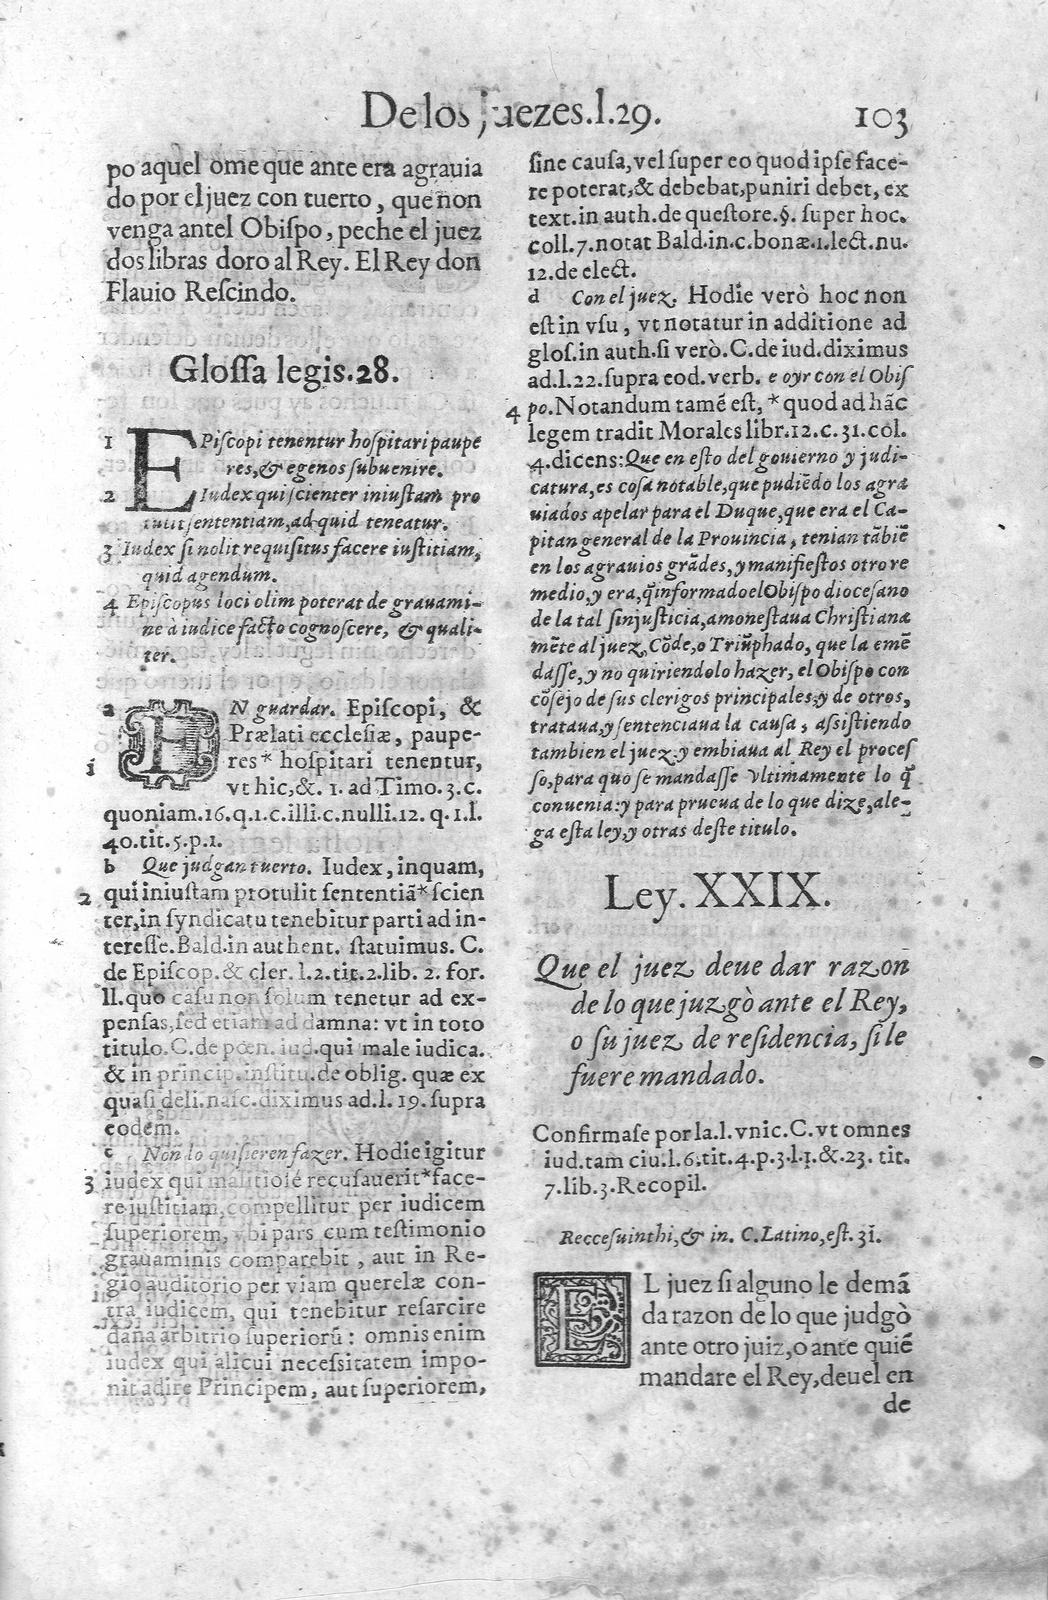 De los Juezes.l.29. 103
po aquel ome que ante era agrauia
do por el juez con tuerto, que non
venga antel Obiſpo, peche el juez
dos libras doro al Rey. El Rey don
Flauio Reſcindo.
Gloſſa legis.28.
1 EPiſcopi tenentur hoſpitari paupe
res, & egenos ſubuenire.
2 Iudex qui ſcienter iniuſtam pro
tulit ſententiam, ad quid teneatur.
3 Iudex ſi nolit requiſitus facere iuſtitiam,
quid agendum.
4 Epiſcopus loci olim poterat de grauami-
ne à iudice facto cognoſcere, & quali-
ter.
a EN guardar. Epiſcopi, &
Prælati eccleſiæ, paupe-
1 res* hoſpitari tenentur,
vt hic, &. 1. ad Timo.3.c.
quoniam.16.q.1.c.illi.c.nulli.12. q.1.l.
40.tit.5.p.1.
b Que judgan tuerto. Iudex, inquam,
2 qui iniuſtam protulit ſententiã* ſcien
ter, in ſyndicatu tenebitur parti ad in-
tereſſe. Bald.in authent. ſtatuimus. C.
de Epiſcop. & cler. l.2.tit.2.lib. 2. for.
ll.quo caſu non ſolum tenetur ad ex-
penſas, ſed etiam ad damna: vt in toto
titulo.C.de pœn. iud.qui male iudica.
& in princip.inſtitu.de oblig. quæ ex
quaſi deli.naſc.diximus ad.l. 19.ſupra
eodem.
c Non lo quiſieren fazer. Hodie igitur
3 iudex qui malitioſe recuſauerit* face-
re iuſtitiam, compellitur per iudicem
ſuperiorem, vbi pars cum teſtimonio
grauaminis comparebit, aut in Re-
gio auditorio per viam querelæ con-
tra iudicem, qui tenebitur reſarcire
dãna arbitrio ſuperiorũ: omnis enim
iudex qui alicui neceſsitatem impo-
nit adire Principem, aut ſuperiorem,
ſine cauſa, vel ſuper eo quod ipſe face-
re poterat, & debebat, puniri debet, ex
text.in auth.de queſtore.§. ſuper hoc.
coll.7.notat Bald.in.c.bonæ.1.lect.nu.
12.de elect.
d Con el juez. Hodie verò hoc non
eſt in vſu, vt notatur in additione ad
gloſ.in auth.ſi verò.C.de iud.diximus
ad.l.22.ſupra eod.verb. e oyr con el Obiſ
4 po. Notandum tamẽ eſt, * quod ad hãc
legem tradit Morales libr.12.c.31.col.
4.dicens: Que en eſto del gouierno y judi-
catura, es coſa notable, que pudiẽdo los agra
uiados apelar para el Duque, que era el Ca-
pitan general de la Prouincia, tenian tãbiẽ
en los agrauios grãdes, y manifieſtos otro re
medio, y era, q̃ informado el Obiſpo dioceſano
de la tal ſinjuſticia, amoneſtaua Chriſtiana
mẽte al juez, Cõde, o Triũphado, que la emẽ
daſſe, y no quiriendolo hazer, el Obiſpo con
cõſejo de ſus clerigos principales, y de otros,
trataua, y ſentenciaua la cauſa, aſsiſtiendo
tambien el juez, y embiaua al Rey el proceſ
ſo, para quo ſe mandaſſe vltimamente lo q̃
conuenia: y para prueua de lo que dize, ale-
ga eſta ley, y otras deſte titulo.
Ley. XXIX.
Que el juez deue dar razon
de lo que juzgò ante el Rey,
o ſu juez de reſidencia, ſi le
fuere mandado.
Confirmaſe por la.l.vnic.C.vt omnes
iud.tam ciu.l.6.tit.4.p.3.l.1.&.23. tit.
7.lib.3.Recopil.
Receſuinthi, & in. C.Latino, eſt. 31.
EL juez ſi alguno le demã
da razon de lo que judgò
ante otro juiz, o ante quiẽ
mandare el Rey, deuel en
de